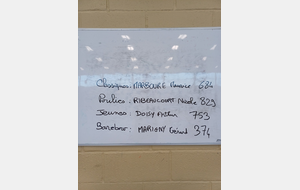 Classiques: MARBOURE Maurice 684
Poulies: RIBEAUCOURT Nicole 829
Jeunes: DOISY Arthur 753
Barebow: MARIGNY Gérard 374